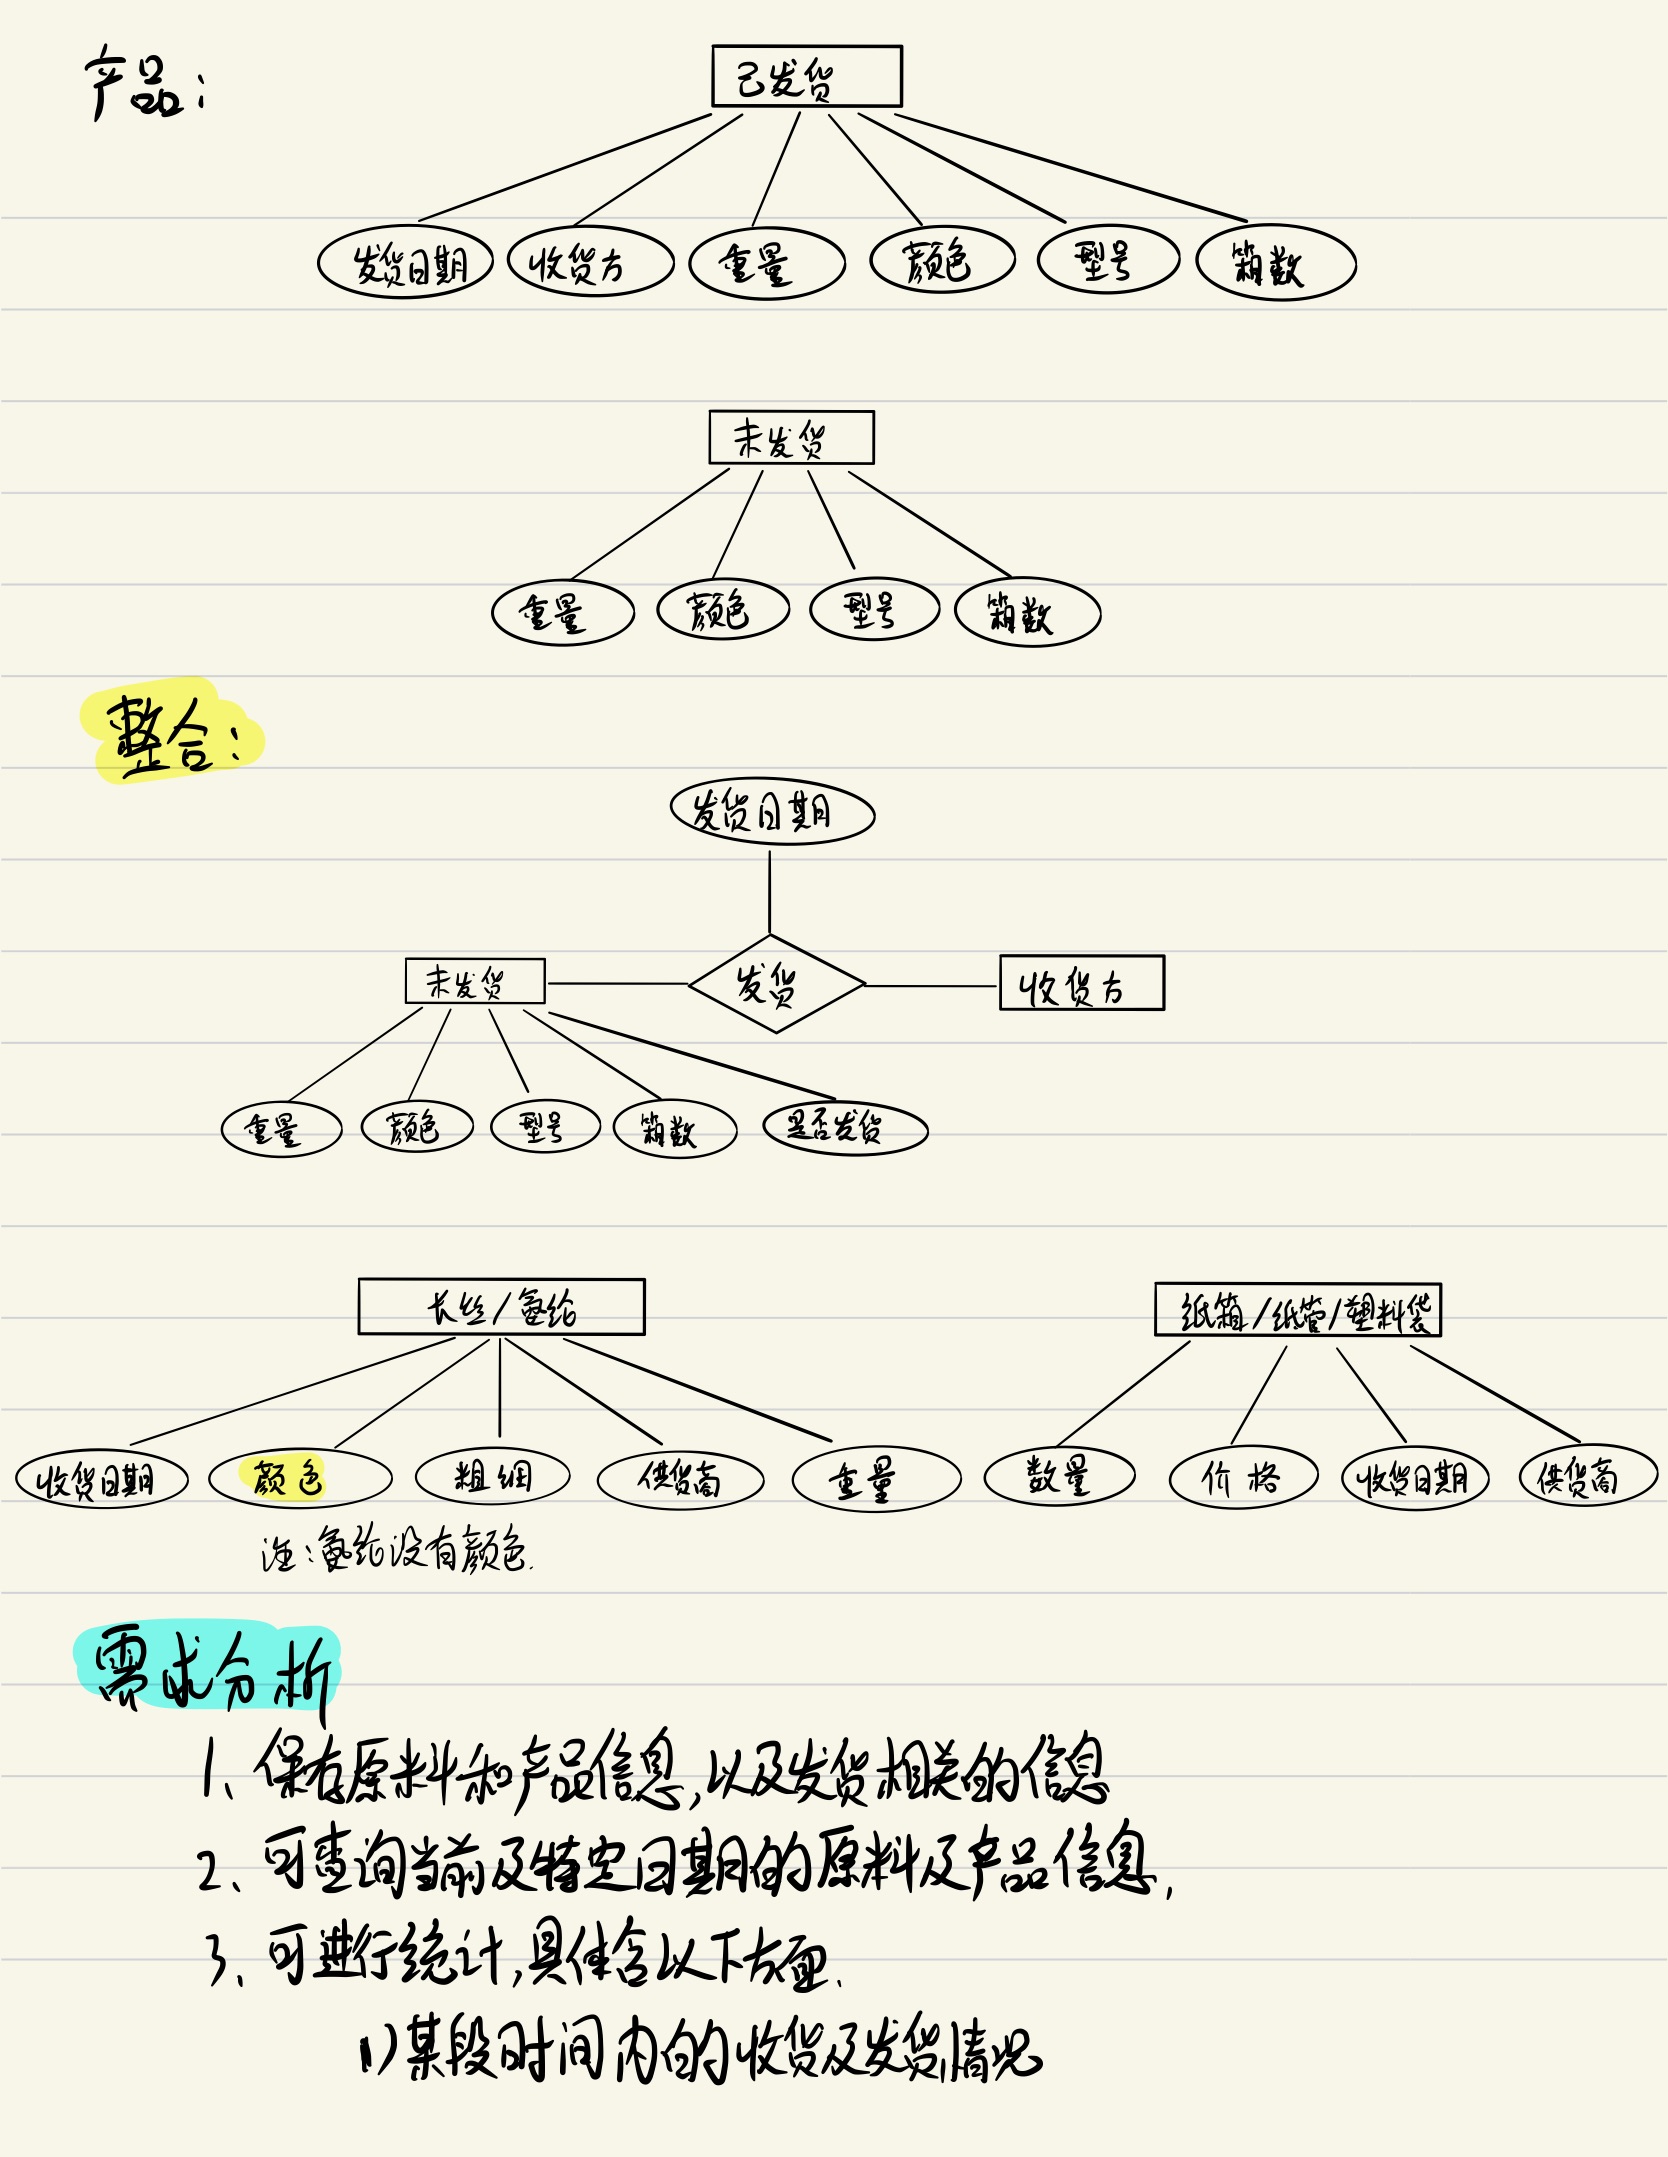 产品：
已发货
发货日期 收货方 重量 颜色 型号 箱数
未发货
重量 颜色 型号 箱数
整合：
发货日期
未发货 发货 收货方
重量 颜色 型号 箱数 是否发货
长丝/氨纶 纸箱/纸管/塑料袋
收货日期 颜色 粗细 供货商 重量 数量 价格 收货日期 供货商
注：氨纶没有颜色.
需求分析
1、保存原料和产品信息,以及发货相关的信息
2、可查询当前及特定日期的原料及产品信息,
3、可进行统计,具体含以下方面.
1)某段时间内的收货及发货情况